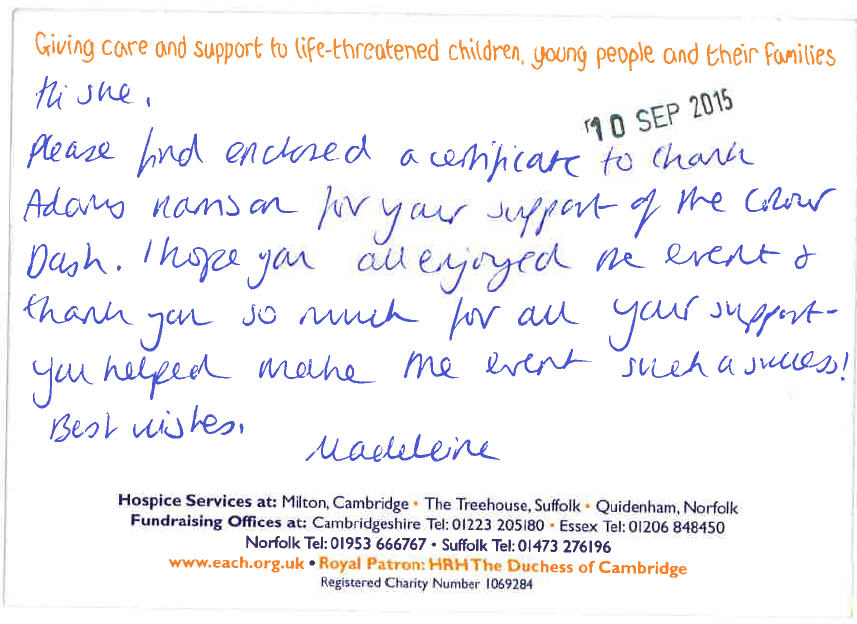 Giving care and support to life-threatened children, young people and their families
Hi Sue,
10 SEP 2015
Please find enclosed a certificate to thank
Adams Harrison for your support of the Colour
Dash. I hope you all enjoyed the event &
thank you so much for all your support-
you helped make the event such a success!
Best wishes,
Madeleine
Hospice Services at: Milton, Cambridge • The Treehouse, Suffolk • Quidenham, Norfolk
Fundraising Offices at: Cambridgeshire Tel: 01223 205180 • Essex Tel: 01206 848450
Norfolk Tel: 01953 666767 • Suffolk Tel: 01473 276196
www.each.org.uk • Royal Patron: HRH The Duchess of Cambridge
Registered Charity Number 1069284